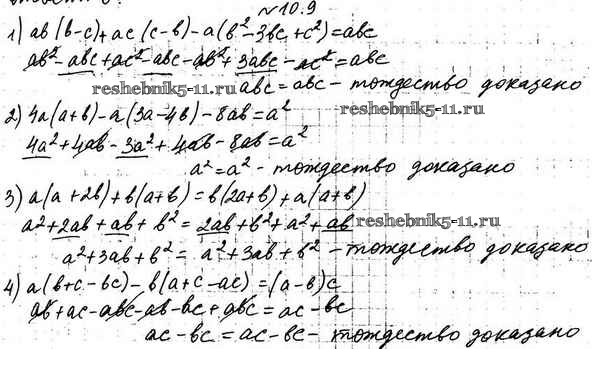 №10.9
1) ab(b-c)+ac(c-b)-a(b²-3bc+c²)=abc
ab²-abc+ac²-abc-ab²+3abc-ac²=abc
abc=abc - тождество доказано
reshebnik5-11.ru reshebnik5-11.ru
2) 4a(a+b)-a(3a-4b)-8ab=a²
4a²+4ab-3a²+4ab-8ab=a²
a²=a² - тождество доказано
3) a(a+2b)+b(a+b)=b(2a+b)+a(a+b)
a²+2ab+ab+b²=2ab+b²+a²+ab reshebnik5-11.ru
a²+3ab+b²=a²+3ab+b² - тождество доказано
4) a(b+c-bc)-b(a+c-ac)=(a-b)c
ab+ac-abc-ab-bc+abc=ac-bc
ac-bc=ac-bc - тождество доказано